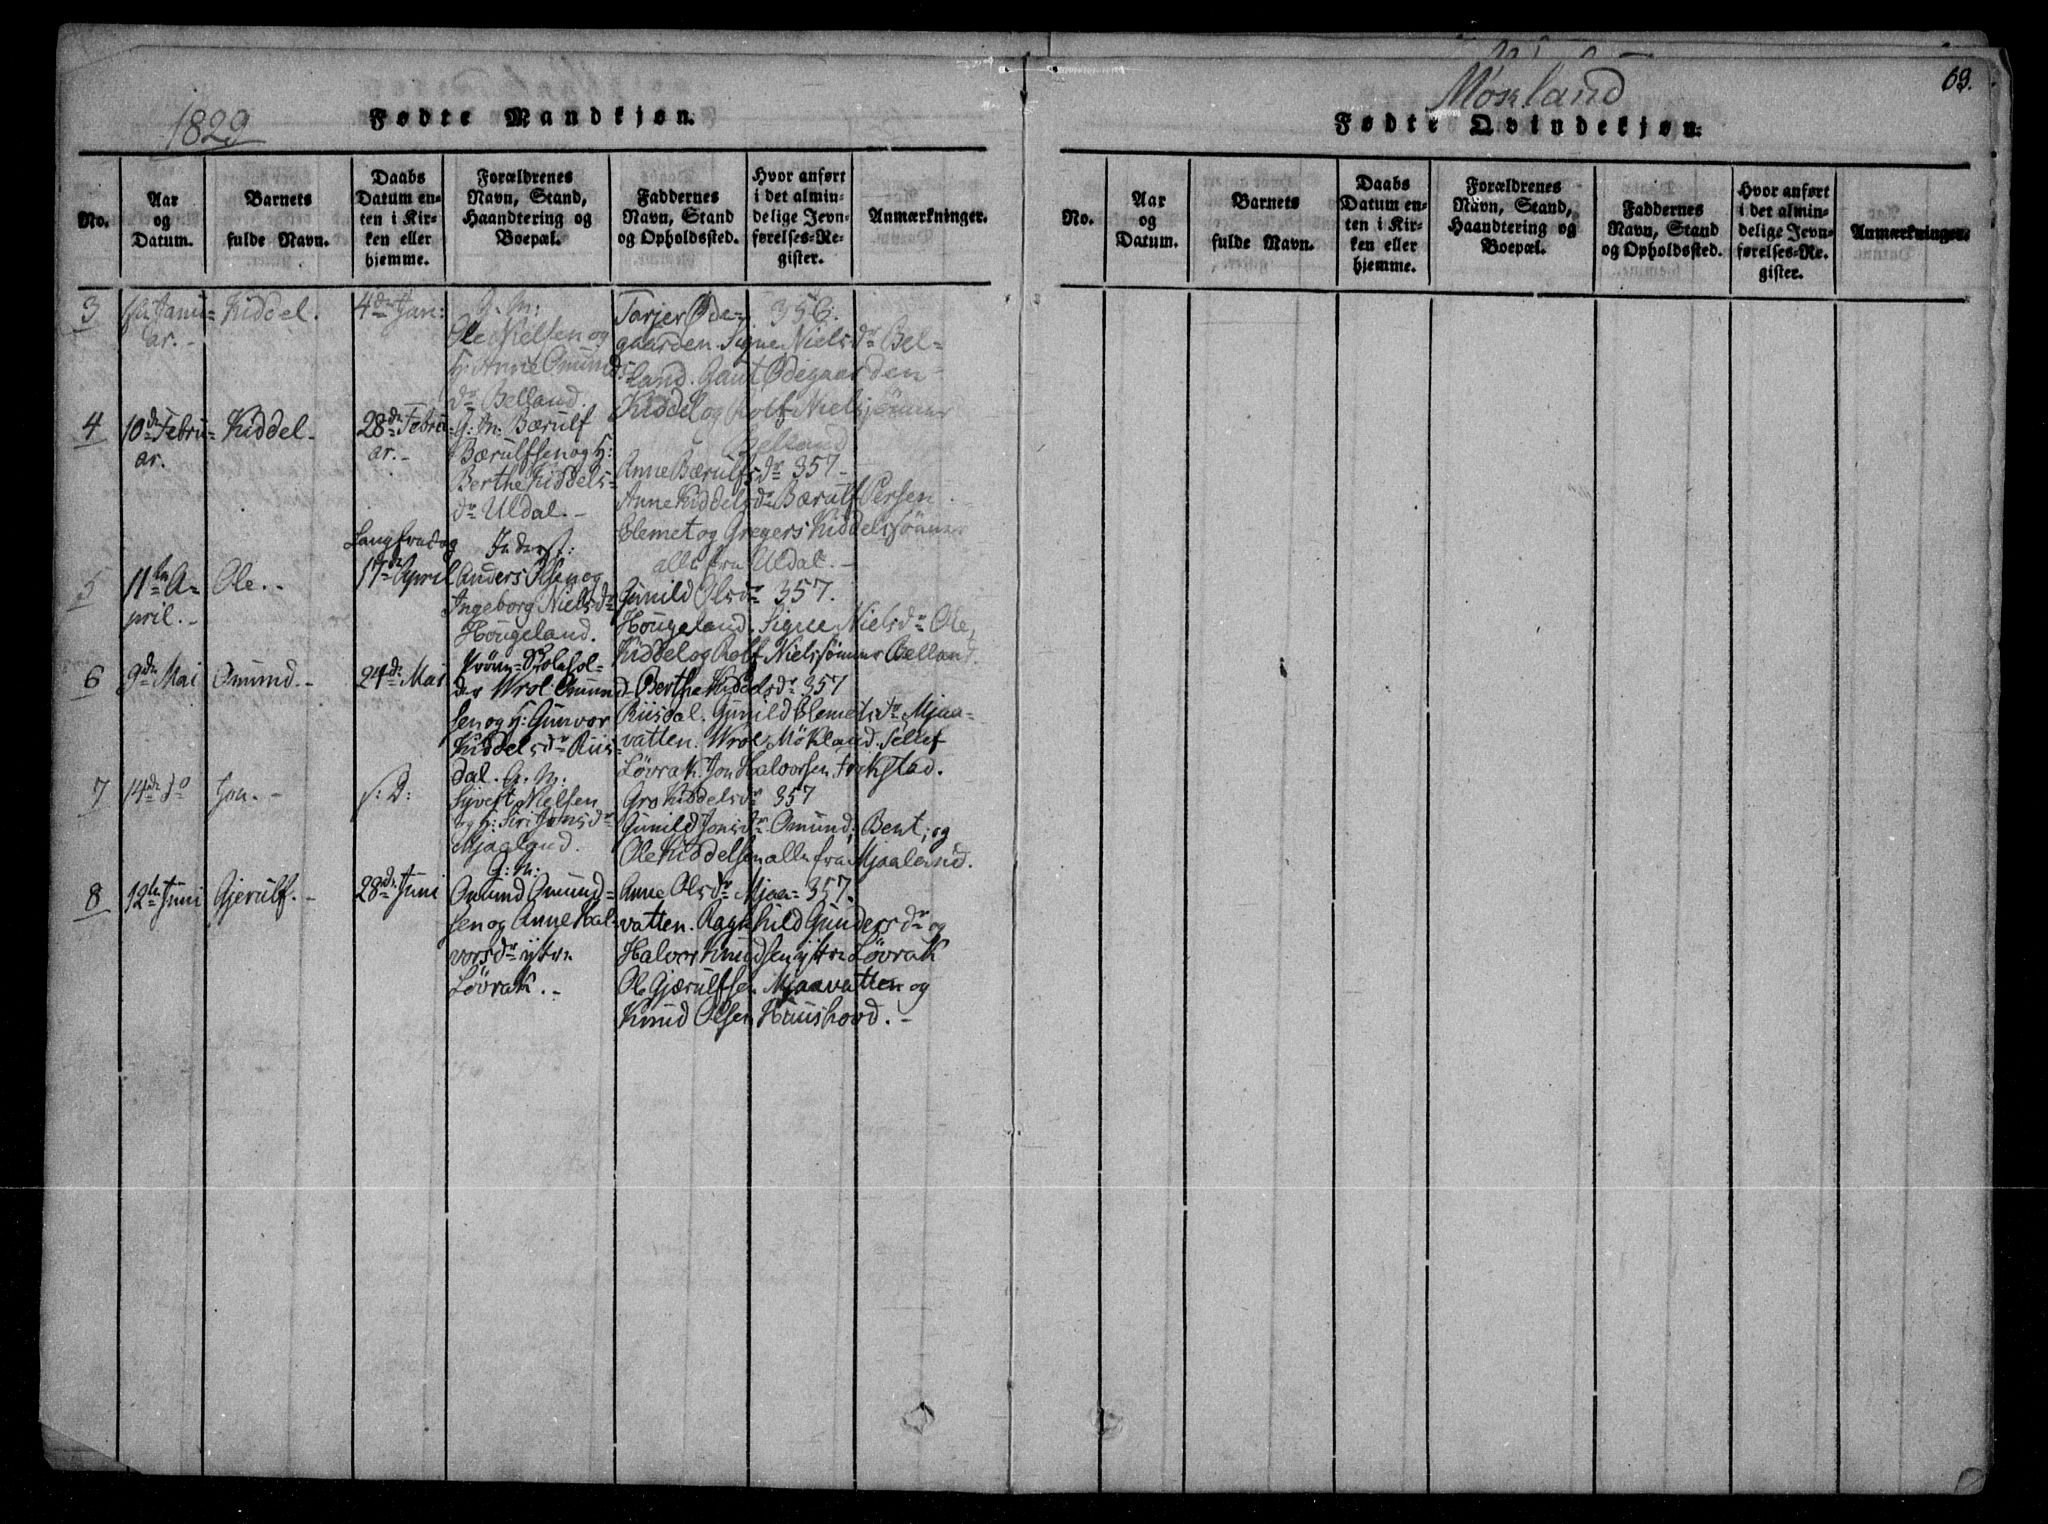 1829
Fødte Mandkjøn.
No.
Aar og Datum.
Barnets fulde Navn.
Daabs Datum enten i Kirken eller hjemme.
Forældrenes Navn, Stand, Haandtering og Boepæl.
Faddernes Navn, Stand og Opholdssted.
Hvor anført i det almindelige Jevnførelses-Register.
Anmærkninger.
3
Januar. -
Kiddel.
4de Jan:
G. M:
Ole Nielsen og
H: Anne Omunds
dr Belland.
Tarjer Øde-
gaarden. Signe Nielsdr Bel-
land. Gaut Ødegaarden -
Kiddel og Rolf Nielsönner
Belland
356.
4
10de Febru-
ar.
Kiddel -
28de Febru-
ar. -
G: M: Bærulf
Bærulfsen og H:
Berthe Kiddels-
dr Uldal. -
Anne Bærulfsdr 357 -
Anne Kiddelsdr Bærulf Persen
Clemet og Gregers Kiddelssönner
alle fra Uldal. -
5
11te A-
pril. -
Ole. -
Langfredag
17de April
Inderst:
Anders Olsen og
Ingeborg Nielsdr
Hougeland.
Gunild Olsdr 357.
Hougeland. Signe Nielsdr Ole,
Kiddel og Rolf Nielssönner Belland.
6
9de Mai
Omund. -
24de Mai
Skolehol-
der Wrol Omund-
sen og H: Gunvor
Kiddelsdr Riis-
dal.
Berthe Kiddelsdr 357
Riisdal. Gunild Clemetsdr Mjaa-
vatten. Wrol Mökland. Sellef
Lövrak. Jon Halvorsen Frikstad.
7
14de do
Jon. -
s: D:
G. M:
Sivert Nielsen
og H: Siri Jonsdr
Mjaaland.
Gro Kiddelsdr 357
Gunild Jonsdr Omund, Bent, og
Ole Kiddelsen alle fra Mjaaland.
8
12te Juni
Gjerulf. -
28de Juni
G: M:
Omund Omund-
sen og Anne Hal-
vorsdr ytre
Lövrak. -
Anne Olsdr Mjaa- 357.
vatten. Ragnhild Gundersdr og
Halvor Knudsen ytre Lövrak
Ole Gjærulfsen Mjaavatten og
Knud Olsen Huushovd. -
Møkland
69.
Fødte Qvindekjøn.
No.
Aar og Datum.
Barnets fulde Navn.
Daabs Datum enten i Kirken eller hjemme.
Forældrenes Navn, Stand, Haandtering og Boepæl.
Faddernes Navn, Stand og Opholdssted.
Hvor anført i det almindelige Jevnførelses-Register.
Anmærkninger.